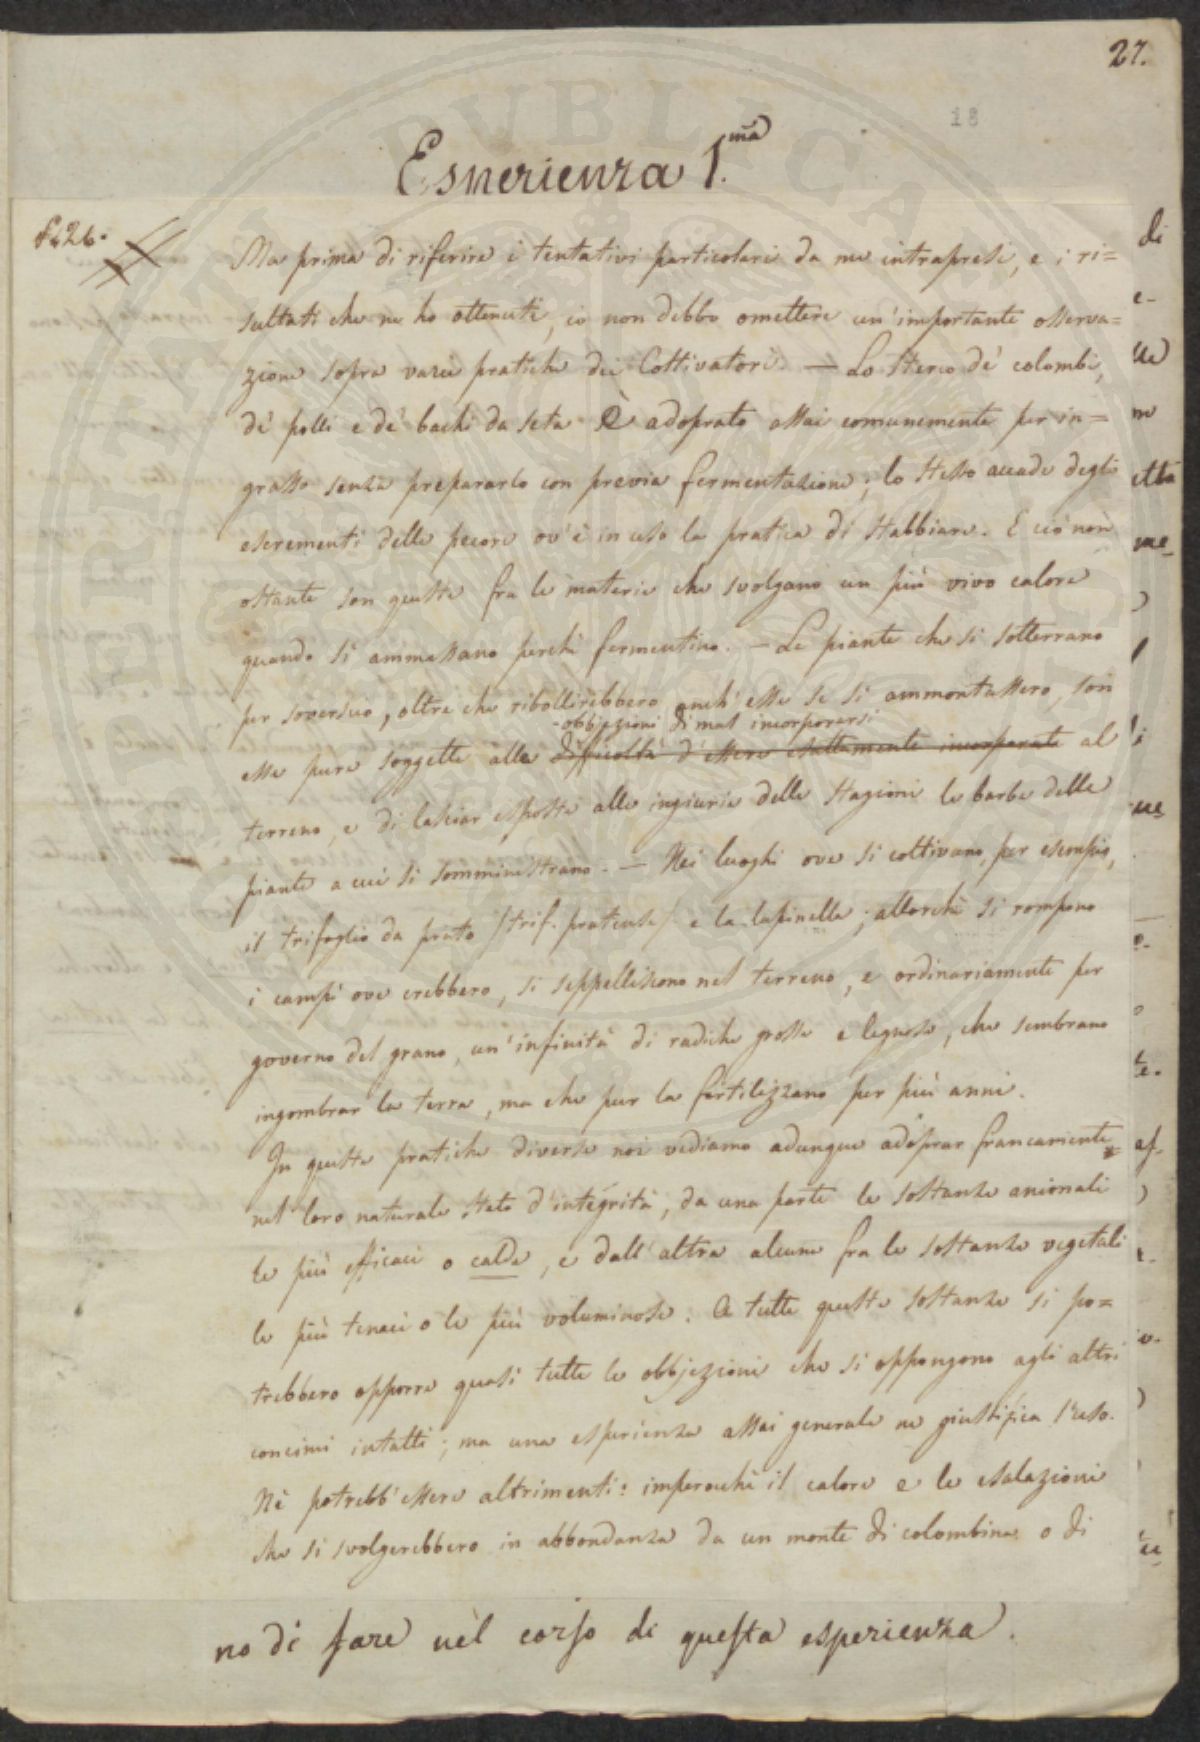 27.
18
Esperienza 1.ma
f. 26.
Ma prima di riferire i tentativi particolari da me intrapresi, e i ri=
sultati che ne ho ottenuti, io non debbo omettere un' importante osserva=
zione sopra varie pratiche dei Coltivatori. — Lo sterco de' colombi,
de' polli e de' bachi da seta è adoprato assai comunemente per in=
grasso senza prepararlo con previa fermentazione; lo stesso accade degli
escrementi delle pecore ov' è in uso la pratica di stabbiare. E ciò non
ostante son queste fra le materie che svolgano un più vivo calore
quando si ammassano perchè fermentino. — Le piante che si sotterrano
per sovescio, oltre che ribollirebbero anch' esse se si ammontassero, son
obbjezioni di mal incorporarsi
esse pure soggette alle difficoltà d' essere esattamente incorporate al
terreno, e di lasciar esposte alle ingiurie delle stagioni le barbe delle
piante a cui si somministrano. — Nei luoghi ove si coltivano, per esempio,
il trifoglio da prato /trif. pratense/ e la lupinella; allorchè si rompono
i campi ove crebbero, si seppelliscono nel terreno, e ordinariamente per
governo del grano, un' infinità di radiche grosse e legnose, che sembrano
ingombrar la terra, ma che pur la fertilizzano per più anni.
In queste pratiche diverse noi vediamo adunque adoprar francamente
nel loro naturale stato d' integrità, da una parte le sostanze animali
le più efficaci o calde, e dall' altra alcune fra le sostanze vegetali
le più tenaci o le più voluminose. A tutte queste sostanze si po=
trebbero opporre quasi tutte le obbjezioni che si oppongono agli altri
concimi intatti; ma una esperienza assai generale ne giustifica l' uso.
Nè potrebb' essere altrimenti: imperocchè il calore e le esalazioni
che si svolgerebbero in abbondanza da un monte di colombina o di
no di fare nel corso di questa esperienza.
di